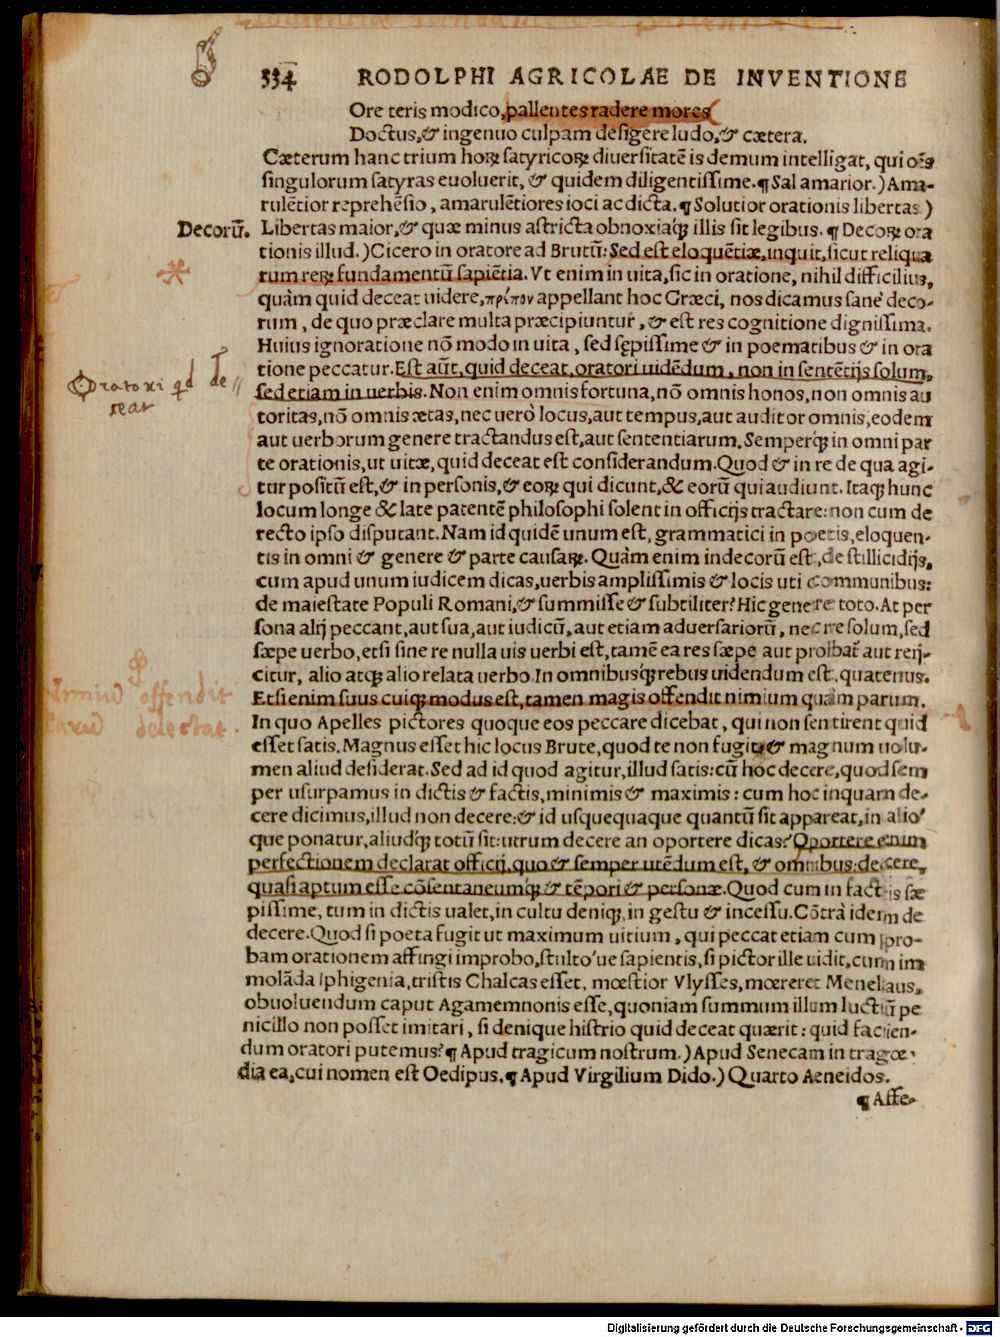 334 RODOLPHI AGRICOLAE DE INVENTIONE
Ore teris modico, pallentes radere mores
Doctus, & ingenuo culpam defigere ludo, & cætera.
Cæterum hanc trium horꝝ satyricorꝝ diuersitatē is demum intelligat, qui oēs
singulorum satyras euoluerit, & quidem diligentissime. ¶ Sal amarior.) Ama-
rulētior reprehēsio, amarulētiores ioci ac dicta. ¶ Solutior orationis libertas.)
Decorū. Libertas maior, & quæ minus astricta obnoxiaq́ꝫ illis sit legibus. ¶ Decorꝝ ora
tionis illud.) Cicero in oratore ad Brutū: Sed est eloquētiæ, inquit, sicut reliqua
rum rerꝝ fundamentū sapiētia. Vt enim in uita, sic in oratione, nihil difficilius,
quàm quid deceat uidere, πρέπον appellant hoc Græci, nos dicamus sanè deco-
rum, de quo præclare multa præcipiuntur, & est res cognitione dignissima.
Huius ignoratione nō modo in uita, sed sępissime & in poematibus & in ora
tione peccatur. Est aūt, quid deceat, oratori uidēdum, non in sentētijs solum,
Oratori qd de
ceat
sed etiam in uerbis. Non enim omnis fortuna, nō omnis honos, non omnis au
toritas, nō omnis ætas, nec uerò locus, aut tempus, aut auditor omnis, eodem
aut uerborum genere tractandus est, aut sententiarum. Semperq́ꝫ in omni par
te orationis, ut uitæ, quid deceat est considerandum. Quod & in re de qua agi-
tur positū est, & in personis, & eorꝝ qui dicunt, & eorū qui audiunt. Itaqꝫ hunc
locum longe & late patentē philosophi solent in officijs tractare: non cum de
recto ipso disputant. Nam id quidē unum est, grammatici in poetis, eloquen-
tis in omni & genere & parte causarꝝ. Quàm enim indecorū est, de stillicidijs,
cum apud unum iudicem dicas, uerbis amplissimis & locis uti communibus:
de maiestate Populi Romani, & summisse & subtiliter? Hic genere toto. At per
sona alij peccant, aut sua, aut iudicū, aut etiam aduersariorū, nec re solum, sed
sæpe uerbo, etsi sine re nulla uis uerbi est, tamē ea res sæpe aut probat̄ aut reij-
citur, alio atqꝫ alio relata uerbo. In omnibusq́ꝫ rebus uidendum est, quatenus.
Nimiū offendit
Parū delectat.
Etsi enim suus cuiqꝫ modus est, tamen magis offendit nimium quàm parum.
In quo Apelles pictores quoque eos peccare dicebat, qui non sentirent quid
esset satis. Magnus esset hic locus Brute, quod te non fugit, & magnum uolu-
men aliud desiderat. Sed ad id quod agitur, illud satis: cū hoc decere, quod sem
per usurpamus in dictis & factis, minimis & maximis: cum hoc inquam de-
cere dicimus, illud non decere: & id usquequaque quantū sit appareat, in alio'
que ponatur, aliudq́ꝫ totū sit: utrum decere an oportere dicas? Oportere enim
perfectionem declarat officij, quo & semper utēdum est, & omnibus: decere,
quasi aptum esse cōsentaneumq́ꝫ & tēpori & personæ. Quod cum in factis sæ
pissime, tum in dictis ualet, in cultu deniqꝫ, in gestu & incessu. Cōtrà idem de
decere. Quod si poeta fugit ut maximum uitium, qui peccat etiam cum pro-
bam orationem affingi improbo, stulto'ue sapientis, si pictor ille uidit, cum im
molāda Iphigenia, tristis Chalcas esset, mœstior Vlysses, mœreret Menelaus,
obuoluendum caput Agamemnonis esse, quoniam summum illum luctū pe
nicillo non posset imitari, si denique histrio quid deceat quærit: quid facien-
dum oratori putemus? ¶ Apud tragicum nostrum.) Apud Senecam in tragœ-
dia ea, cui nomen est Oedipus. ¶ Apud Virgilium Dido.) Quarto Aeneidos.
¶ Asse-
Digitalisierung gefördert durch die Deutsche Forschungsgemeinschaft - DFG